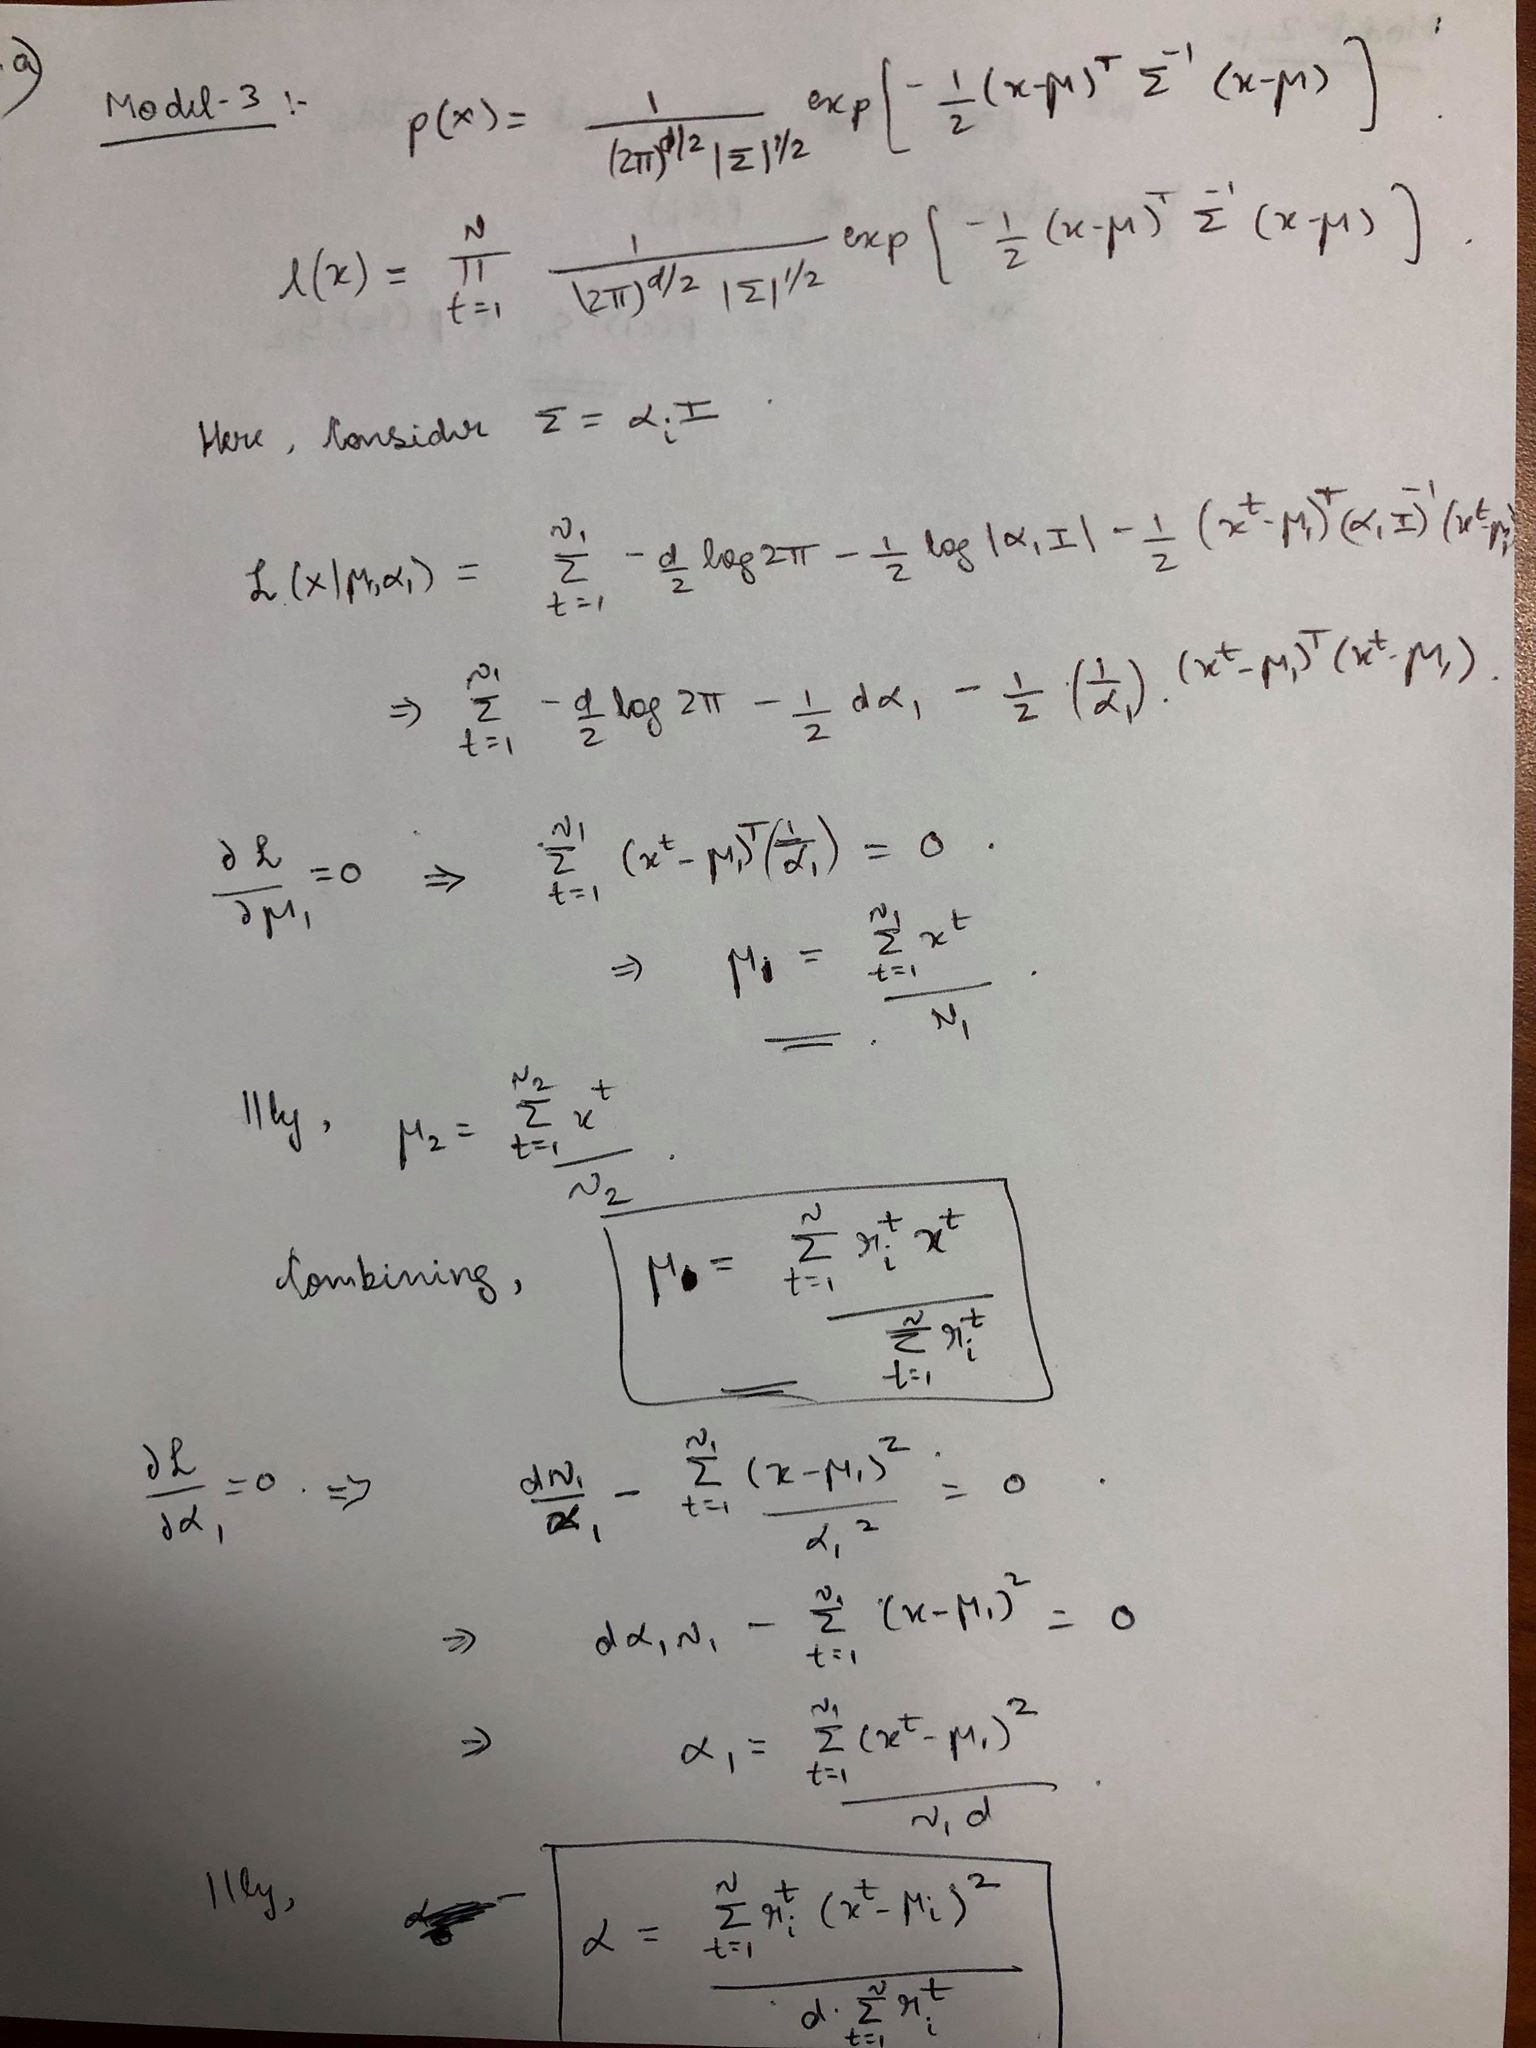 a)
Model-3 :- p(x) = 1 / (2π)^{d/2} |Σ|^{1/2} exp[ -1/2 (x-μ)^T Σ^{-1} (x-μ) ]
l(x) = Π_{t=1}^{N} 1 / (2π)^{d/2} |Σ|^{1/2} exp[ -1/2 (x-μ)^T Σ^{-1} (x-μ) ].
Here, Consider Σ = α_i I
L(x|μ_1, α_1) = Σ_{t=1}^{N_1} -d/2 log 2π - 1/2 log |α_1 I| - 1/2 (x^t-μ_1)^T (α_1 I)^{-1} (x^t-μ_1)
⇒ Σ_{t=1}^{N_1} -d/2 log 2π - 1/2 dα_1 - 1/2 (1/α_1). (x^t-μ_1)^T (x^t-μ_1).
∂L/∂μ_1 = 0 ⇒ Σ_{t=1}^{N_1} (x^t-μ_1)^T (1/α_1) = 0.
⇒ μ_1 = Σ_{t=1}^{N_1} x^t / N_1.
||ly, μ_2 = Σ_{t=1}^{N_2} x^t / N_2.
Combining, μ = Σ_{t=1}^{N} r_i^t x^t / Σ_{t=1}^{N} r_i^t
∂L/∂α_1 = 0. ⇒ dN_1/α_1 - Σ_{t=1}^{N_1} (x-μ_1)^2 / α_1^2 = 0.
⇒ dα_1 N_1 - Σ_{t=1}^{N_1} (x-μ_1)^2 = 0
⇒ α_1 = Σ_{t=1}^{N_1} (x^t-μ_1)^2 / N_1 d.
||ly, α = Σ_{t=1}^{N} r_i^t (x^t-μ_i)^2 / d. Σ_{t=1}^{N} r_i^t